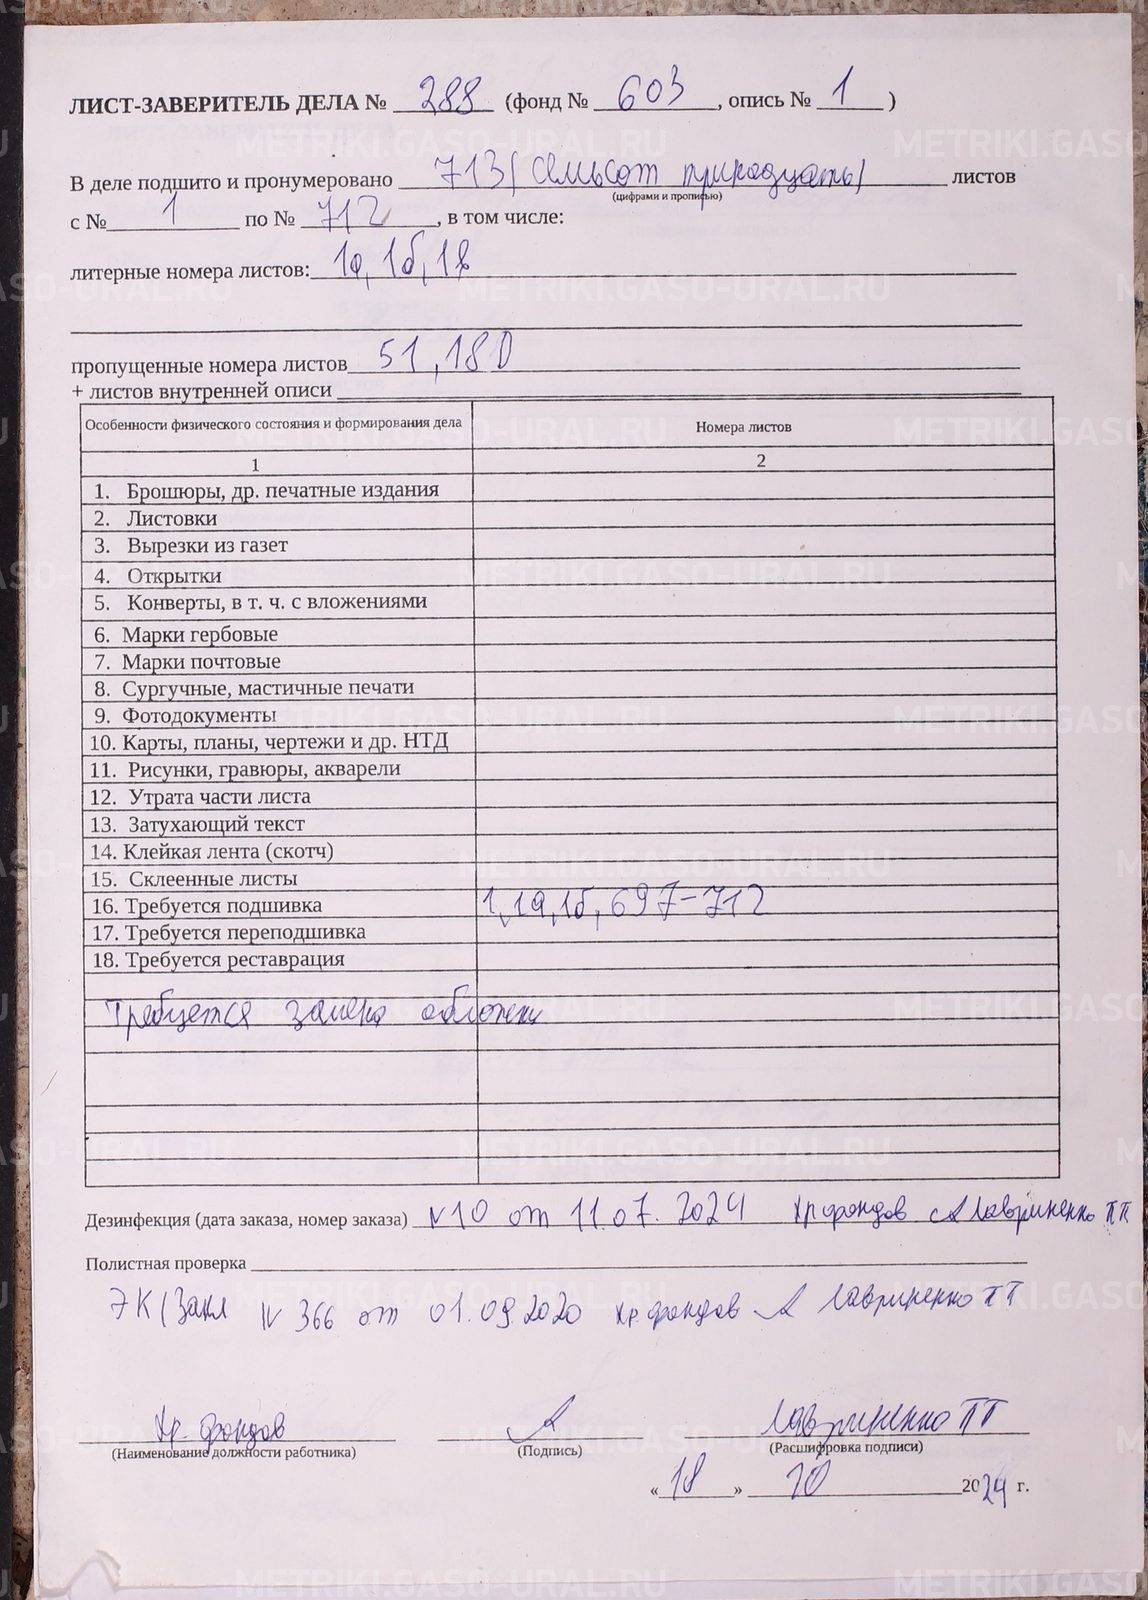 ЛИСТ-ЗАВЕРИТЕЛЬ ДЕЛА № 288 (фонд № 603, опись № 1 )
В деле подшито и пронумеровано 713 (семьсот тринадцать) листов
(цифрами и прописью)
с № 1 по № 712, в том числе:
литерные номера листов: 1а, 1б, 1в
пропущенные номера листов 51, 180
+ листов внутренней описи
Особенности физического состояния и формирования дела Номера листов
1 2
1. Брошюры, др. печатные издания
2. Листовки
3. Вырезки из газет
4. Открытки
5. Конверты, в т. ч. с вложениями
6. Марки гербовые
7. Марки почтовые
8. Сургучные, мастичные печати
9. Фотодокументы
10. Карты, планы, чертежи и др. НТД
11. Рисунки, гравюры, акварели
12. Утрата части листа
13. Затухающий текст
14. Клейкая лента (скотч)
15. Склеенные листы
16. Требуется подшивка 1, 1а, 1б, 697-712
17. Требуется переподшивка
18. Требуется реставрация
Требуется замена обложки
Дезинфекция (дата заказа, номер заказа) №10 от 11.07.2024 Хр фондов Лавриненко ПП
Полистная проверка
ЭК/Закл № 366 от 01.09.2020 хр. фондов Лавриненко ПП
Хр. фондов Лавриненко ПП
(Наименование должности работника) (Подпись) (Расшифровка подписи)
«18» 10 2024 г.
METRIKI.GASO-URAL.RU